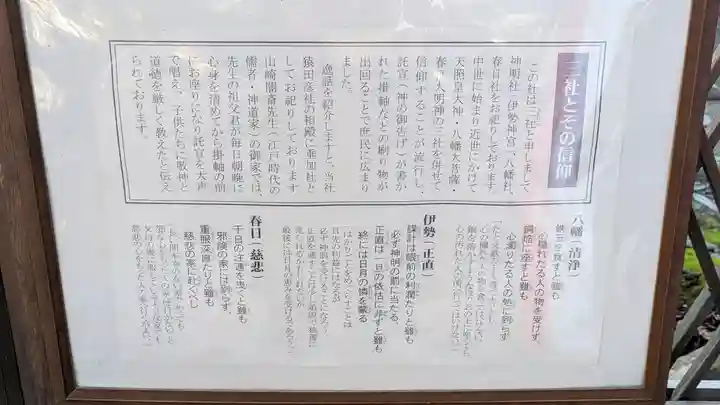 三社とその信仰
この社は三社と申しまして
神明社（伊勢神宮）八幡社、
春日社をお祀りしております
中世に始まり近世にかけて
天照皇大神・八幡大菩薩・
春日大明神の三社を併せて
信仰することが流行し、
託宣（神の御告げ）が書か
れた掛軸などの刷り物が
出回ることで庶民に広まり
ました。
逸話を紹介しますと、当社
猿田彦社の相殿に垂加社と
してお祀りしております
山崎闇斎先生（江戸時代の
儒者・神道家）の御家では、
先生の祖父君が毎日朝晩に
心身を清めてから掛軸の前
にお座りになり託宣を大声
で唱え、子供たちに敬神と
道徳を厳しく教えたと伝え
られております。
八幡（清浄）
鉄丸を食すと雖も
心穢れたる人の物を受けず、
銅焔に座すと雖も
心濁りたる人の処に到らず
伊勢（正直）
謀計は眼前の利潤たりと雖も
必ず神明の罰に当たる、
正直は一旦の依怙に非ずと雖も
終には日月の憐を蒙る
春日（慈悲）
千日の注連を曳くと雖も
邪険の家には到らず、
重服深厚たりと雖も
慈悲の家に赴くべし